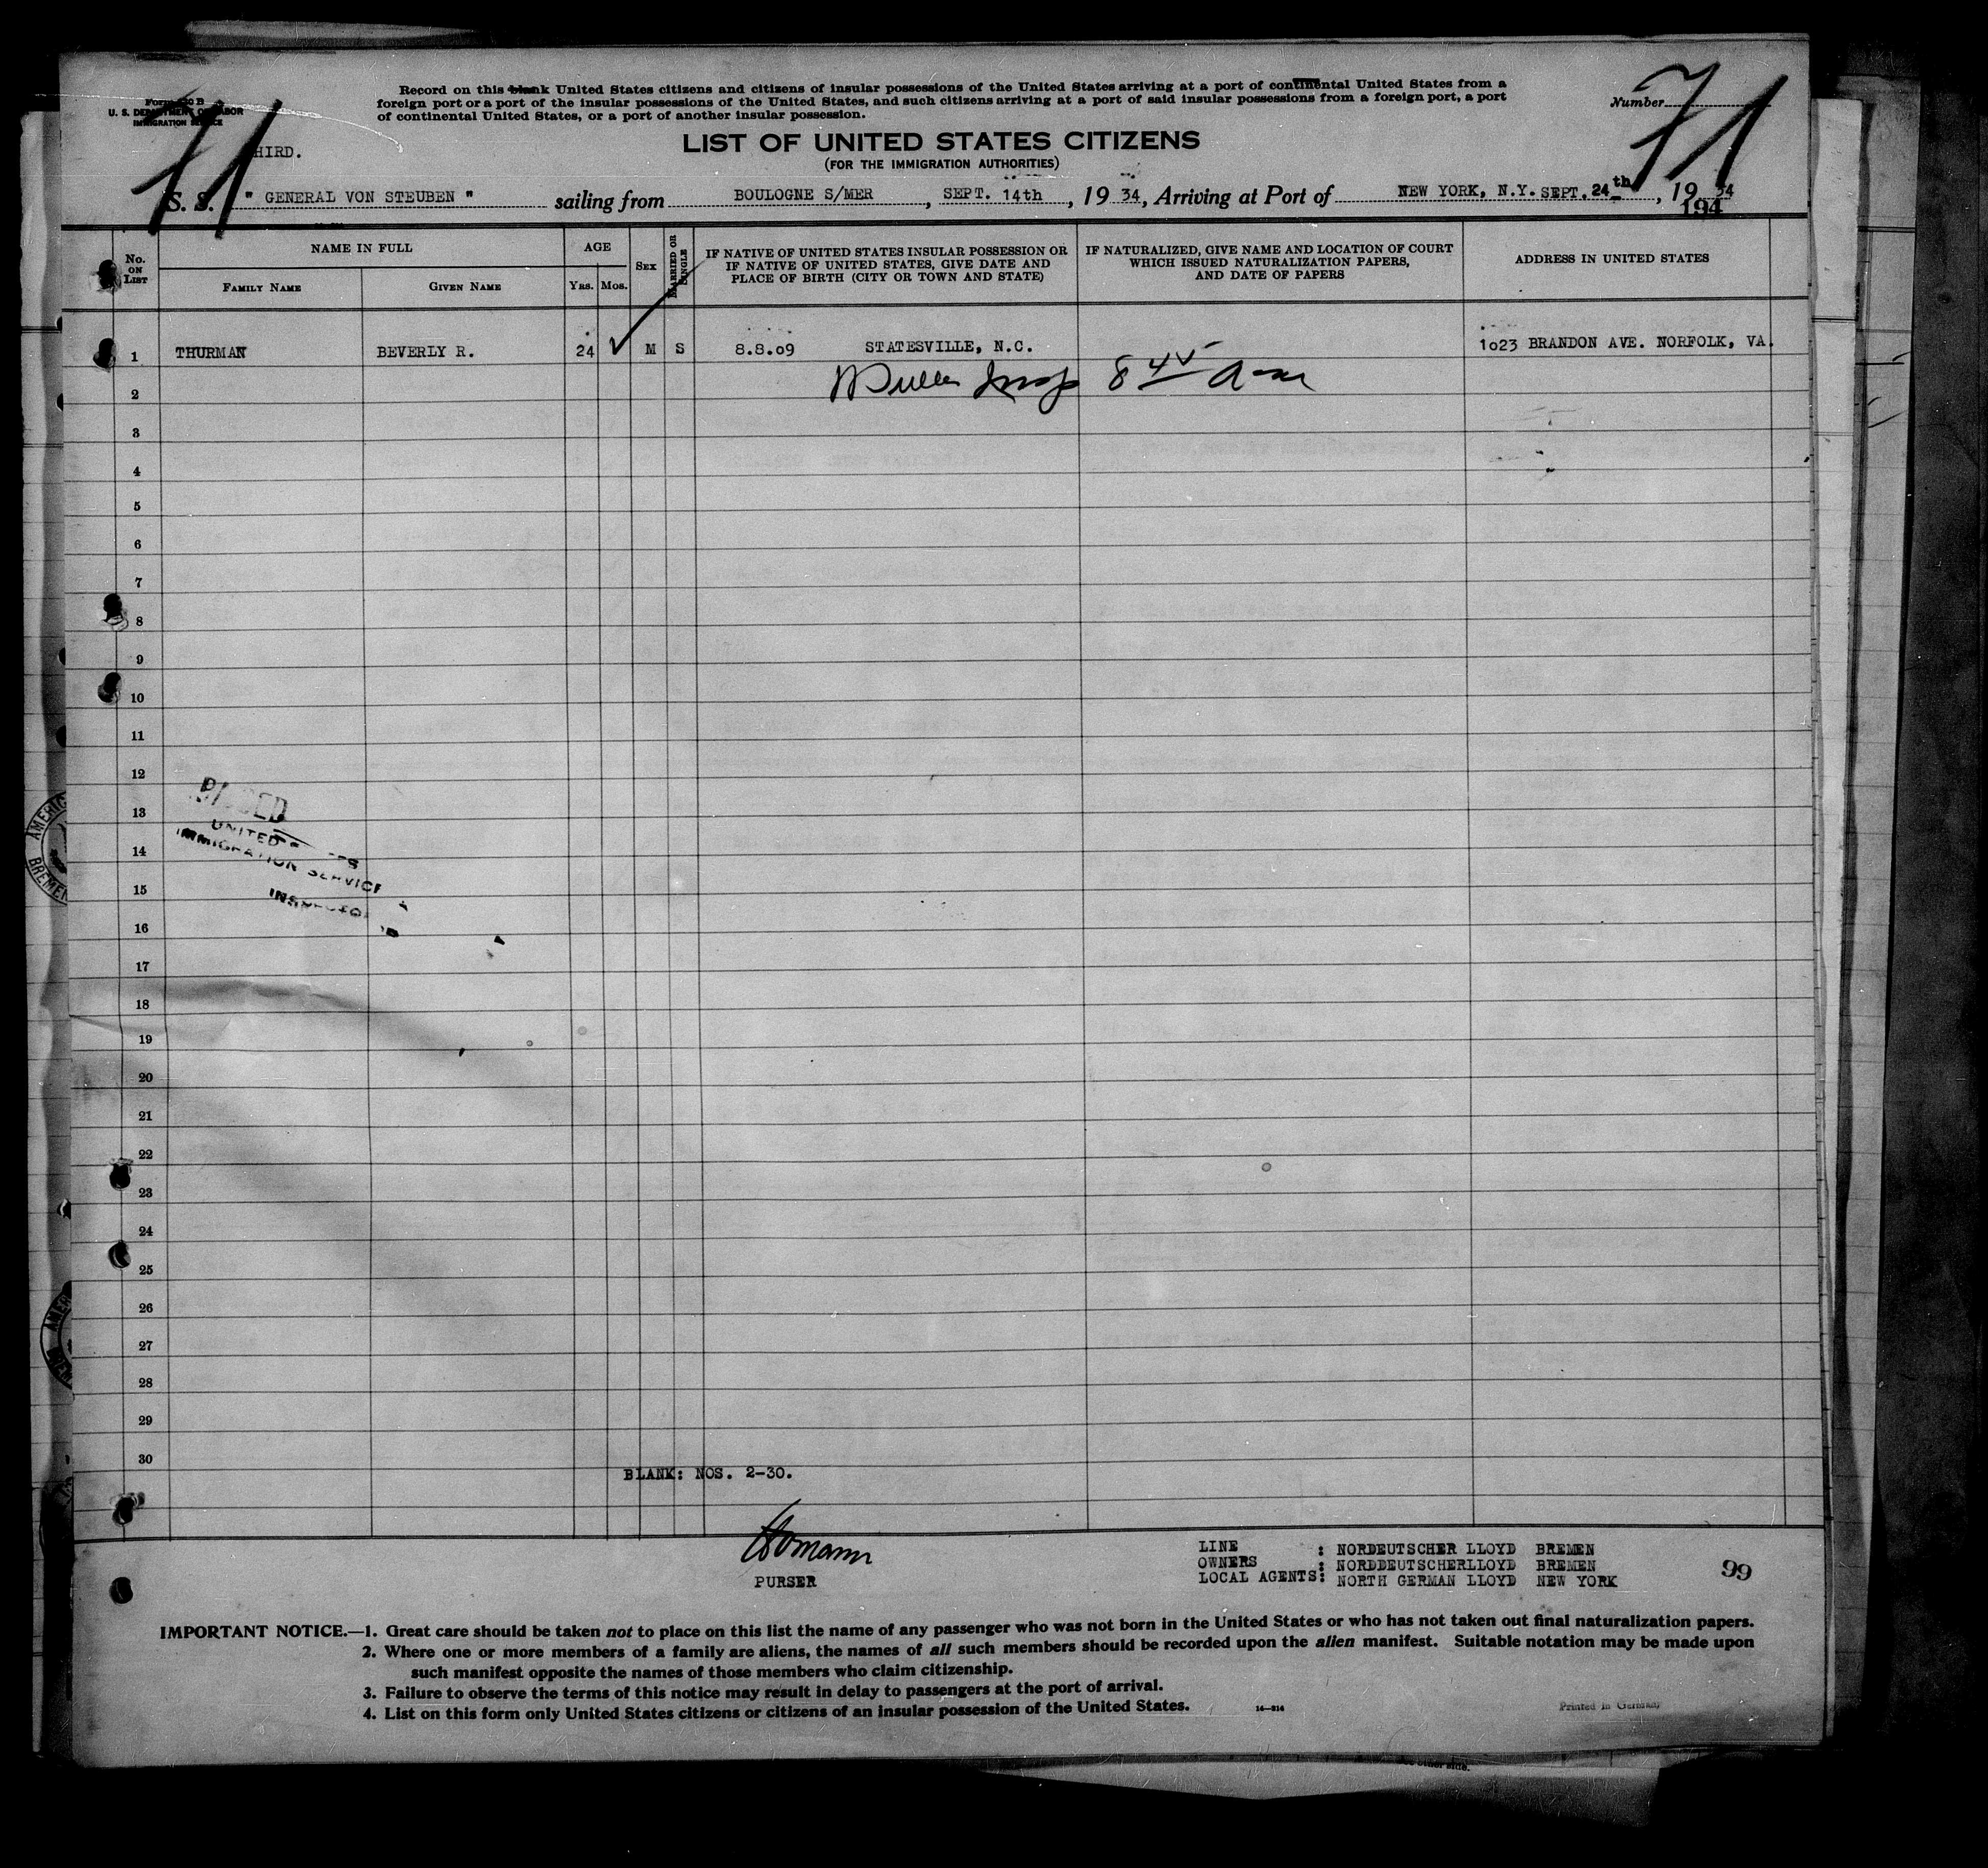 Record on this blank United States citizens and citizens of insular possessions of the United States arriving at a port of continental United States from a
foreign port or a port of the insular possessions of the United States, and such citizens arriving at a port of said insular possessions from a foreign port, a port
of continental United States, or a port of another insular possession.
U. S. DEPARTMENT OF LABOR
IMMIGRATION SERVICE
Number
71
71
HIRD.
LIST OF UNITED STATES CITIZENS
(FOR THE IMMIGRATION AUTHORITIES)
S. S. " GENERAL VON STEUBEN " sailing from BOULOGNE S/MER, SEPT. 14th, 19 34, Arriving at Port of NEW YORK, N.Y. SEPT. 24th, 19 34
194
No. ON LIST
NAME IN FULL
FAMILY NAME
GIVEN NAME
AGE
YRS. MOS.
SEX
MARRIED OR SINGLE
IF NATIVE OF UNITED STATES INSULAR POSSESSION OR
IF NATIVE OF UNITED STATES, GIVE DATE AND
PLACE OF BIRTH (CITY OR TOWN AND STATE)
IF NATURALIZED, GIVE NAME AND LOCATION OF COURT
WHICH ISSUED NATURALIZATION PAPERS,
AND DATE OF PAPERS
ADDRESS IN UNITED STATES
1 THURMAN BEVERLY R. 24 M S 8.8.09 STATESVILLE, N.C. 1023 BRANDON AVE. NORFOLK, VA.
2 Insp 8 45 am
3
4
5
6
7
8
9
10
11
12
13
14
15
16
17
18
19
20
21
22
23
24
25
26
27
28
29
30
UNITED
IMMIGRATION SERVICE
INSPECTOR
BLANK: NOS. 2-30.
PURSER
LINE : NORDEUTSCHER LLOYD BREMEN
OWNERS : NORDDEUTSCHERLLOYD BREMEN
LOCAL AGENTS: NORTH GERMAN LLOYD NEW YORK
99
IMPORTANT NOTICE.—1. Great care should be taken not to place on this list the name of any passenger who was not born in the United States or who has not taken out final naturalization papers.
2. Where one or more members of a family are aliens, the names of all such members should be recorded upon the alien manifest. Suitable notation may be made upon
such manifest opposite the names of those members who claim citizenship.
3. Failure to observe the terms of this notice may result in delay to passengers at the port of arrival.
4. List on this form only United States citizens or citizens of an insular possession of the United States.
14—214
Printed in Germany